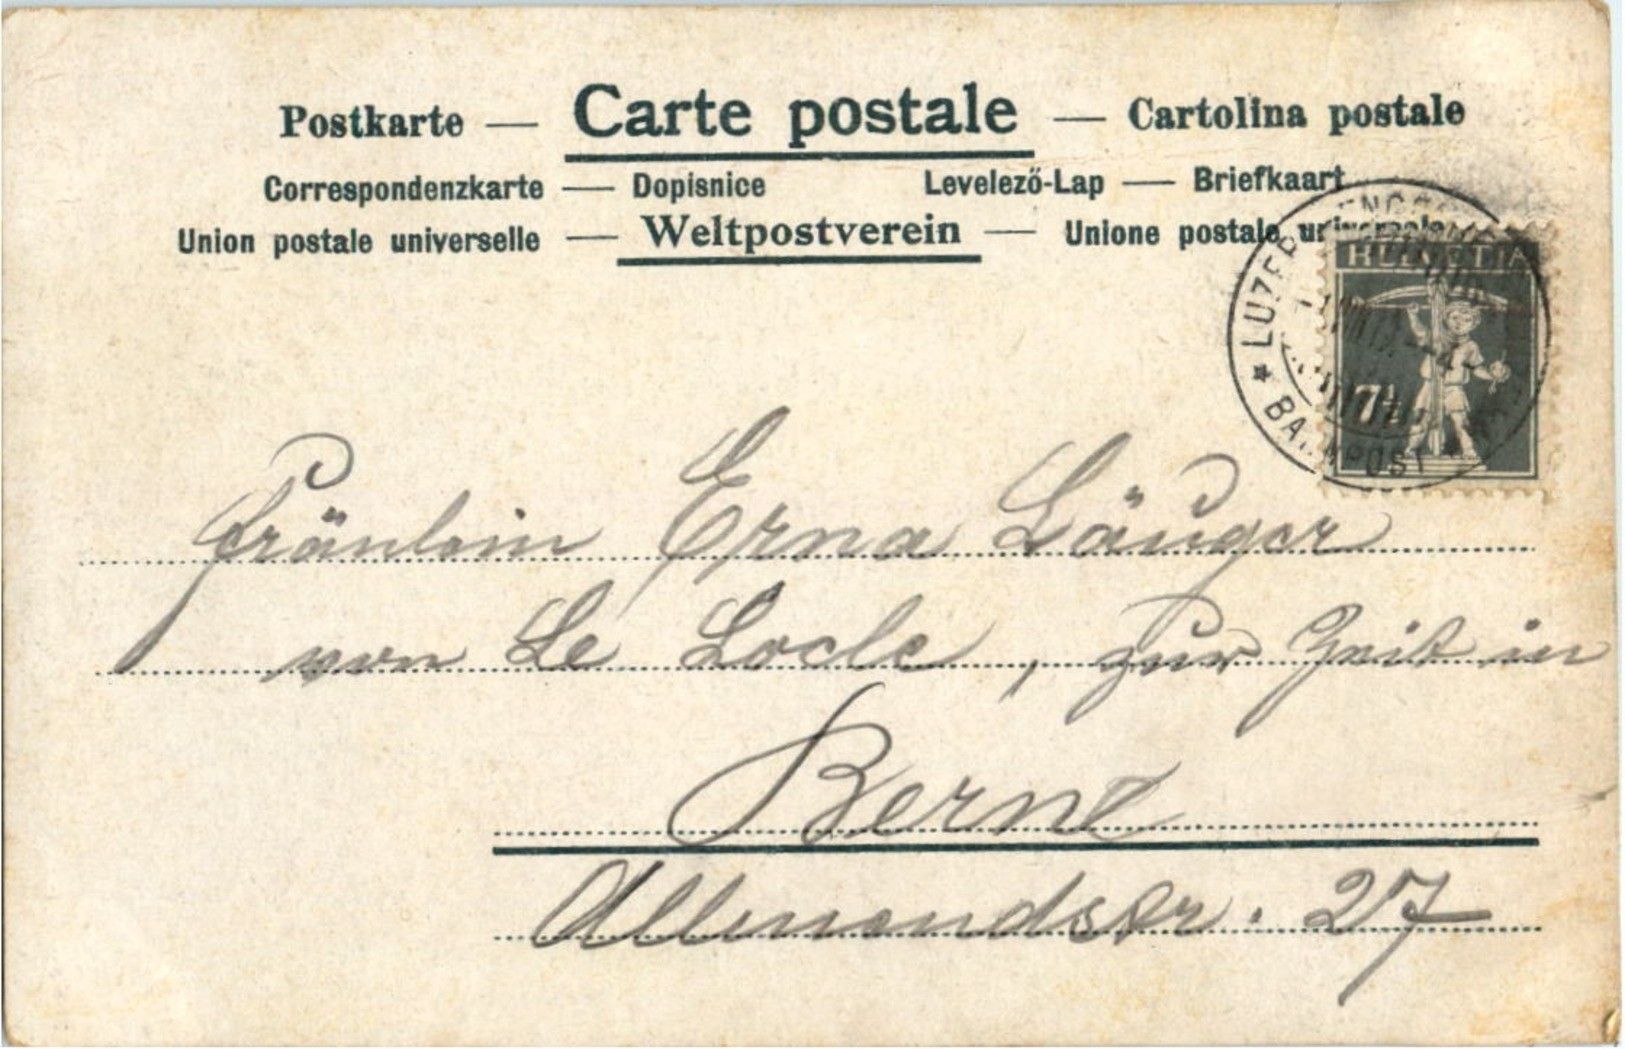 Postkarte — Carte postale — Cartolina postale
Correspondenzkarte — Dopisnice Levelező-Lap — Briefkaart
Union postale universelle — Weltpostverein — Unione postale universale
HELVETIA
7½
LUZERN
BAHNPOST
Fräulein Erna Läuger
von Le Locle, zur Zeit in
Berne
Allmendstr. 27